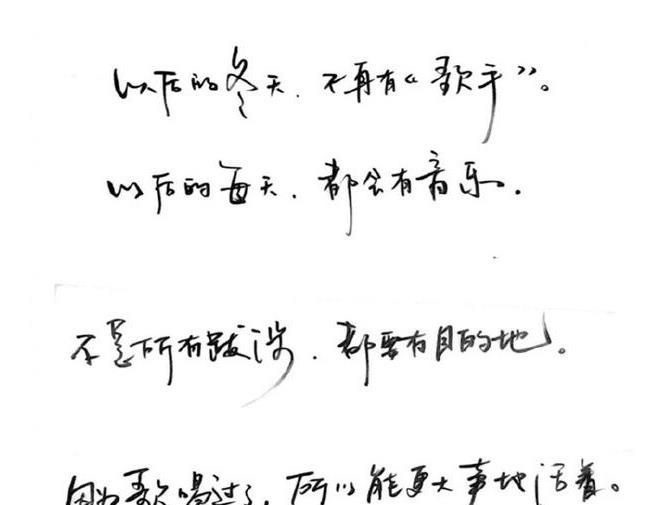 以后的冬天.不再有《歌手》。
以后的每天.都会有音乐.
不是所有跋涉.都要有目的地。
因为歌唱过了.所以能更大声地活着。